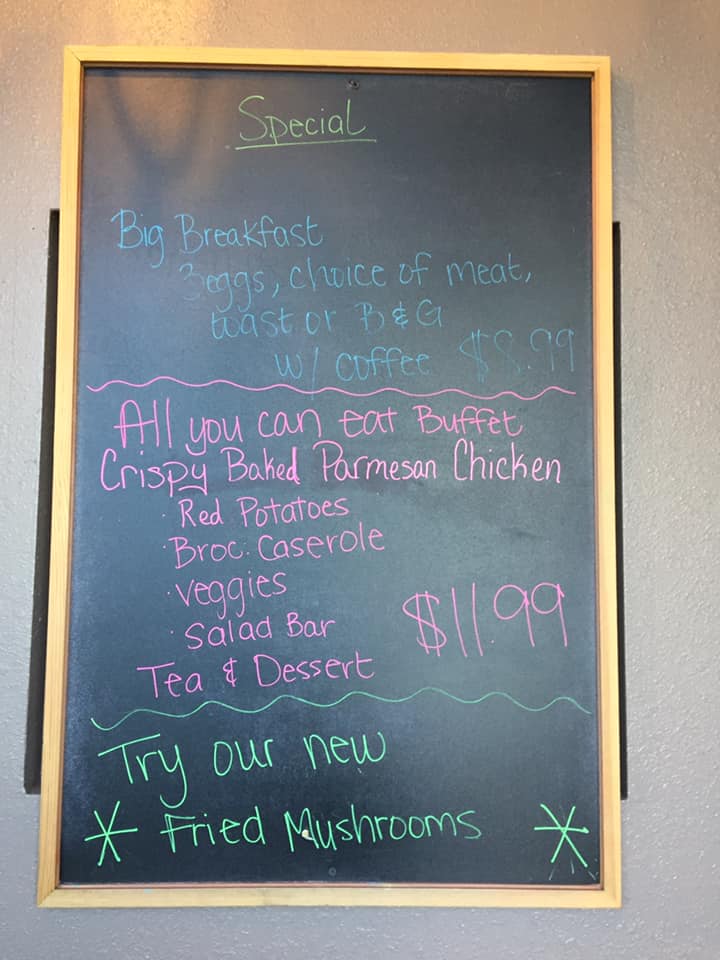 Special
Big Breakfast
3eggs, choice of meat,
toast or B & G
w/ coffee $8.99
All you can eat Buffet
Crispy Baked Parmesan Chicken
· Red Potatoes
· Broc. Caserole
· veggies
· Salad Bar
$11.99
Tea & Dessert
Try our new
* Fried Mushrooms *